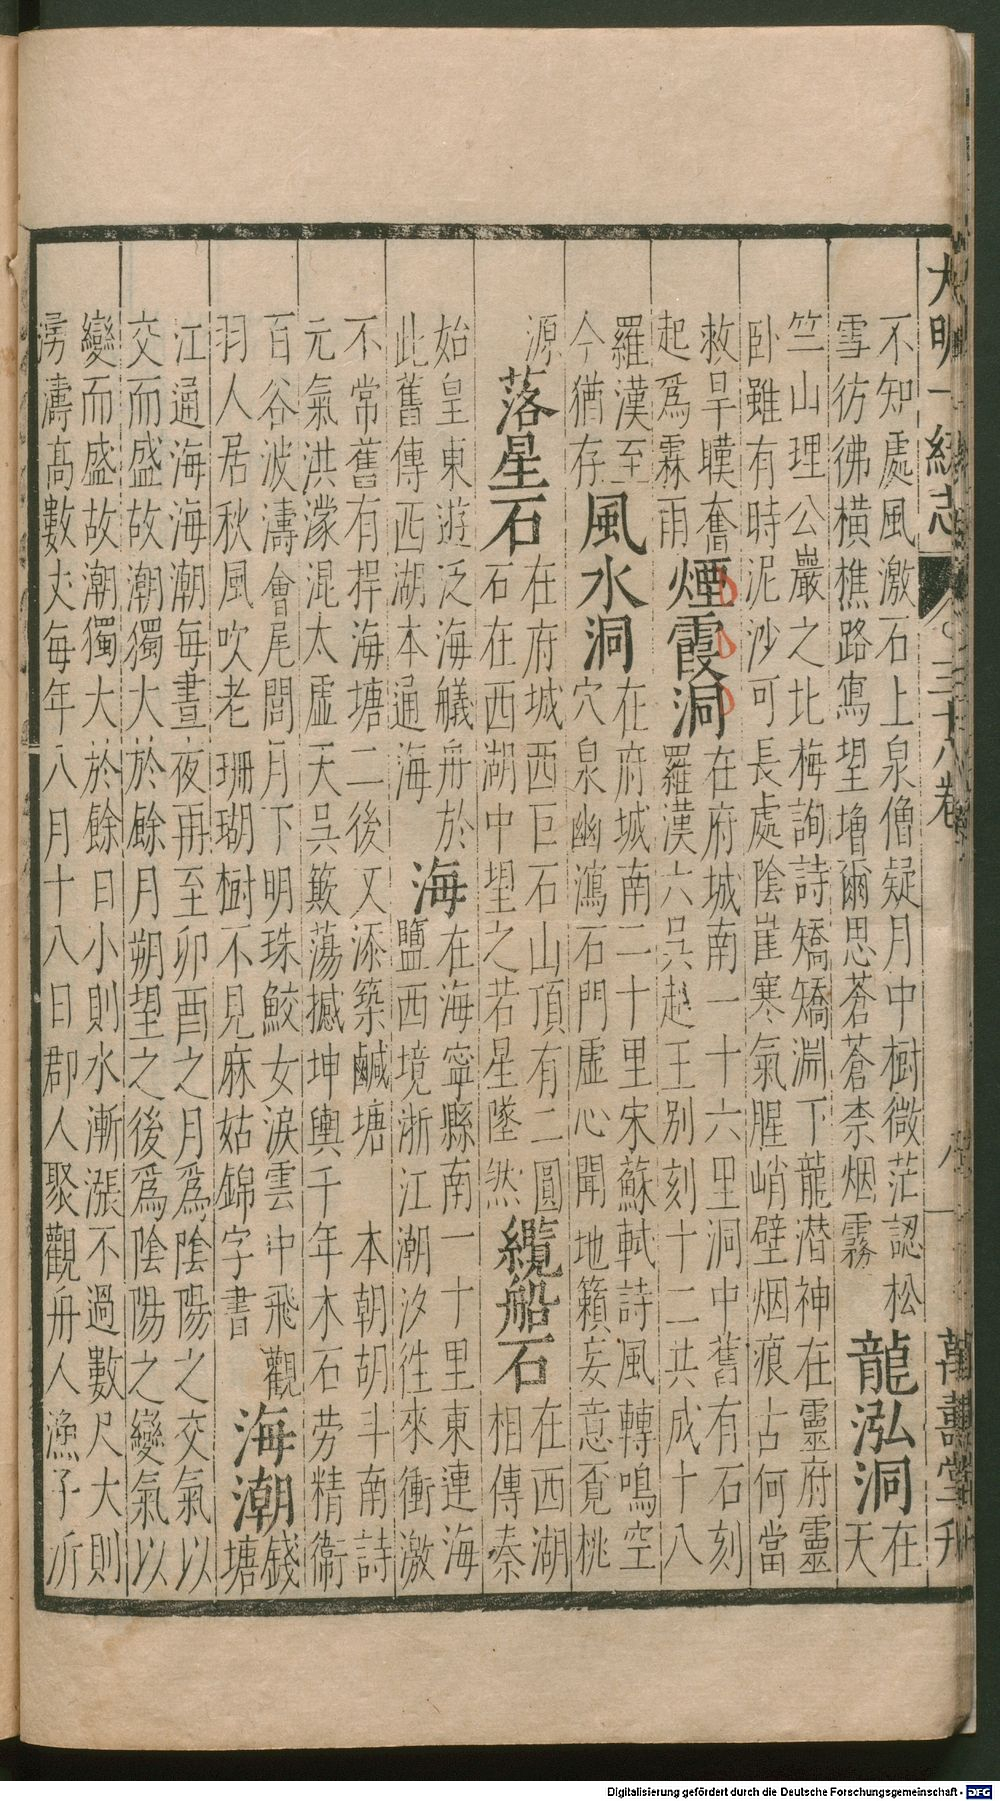 大明一統志 卷之三十八卷 八 萬壽堂刊
不知處風激石上泉僧疑月中樹微茫認松
雪彷彿橫樵路寫望增爾思蒼蒼柰烟霧
龍泓洞
在
天
竺山理公巖之北梅詢詩矯矯淵下龍潜神在靈府靈
臥雖有時泥沙可長處陰崖寒氣腥峭壁烟痕古何當
救旱暵奮
起爲霖雨
煙霞洞
在府城南一十六里洞中舊有石刻
羅漢六吳越王別刻十二共成十八
羅漢至
今猶存
風水洞
在府城南二十里宋蘇軾詩風轉鳴空
穴泉幽瀉石門虛心聞地籟妄意覔桃
源
落星石
在府城西巨石山頂有二圓
石在西湖中望之若星墜然
纜船石
在西湖
相傳秦
始皇東遊泛海艤舟於
此舊傳西湖本通海
海
在海寧縣南一十里東連海
鹽西境浙江潮汐徃來衝激
不常舊有捍海塘二後又添築鹹塘 本朝胡斗南詩
元氣洪濛混太虛天吳簸蕩撼坤輿千年木石勞精衞
百谷波濤會尾閭月下明珠鮫女淚雲中飛觀
羽人居秋風吹老珊瑚樹不見麻姑錦字書
海潮
錢
塘
江通海海潮每晝夜再至卯酉之月爲陰陽之交氣以
交而盛故潮獨大於餘月朔望之後爲陰陽之變氣以
變而盛故潮獨大於餘日小則水漸漲不過數尺大則
滂濤高數丈每年八月十八日郡人聚觀舟人漁子泝
Digitalisierung gefördert durch die Deutsche Forschungsgemeinschaft - DFG